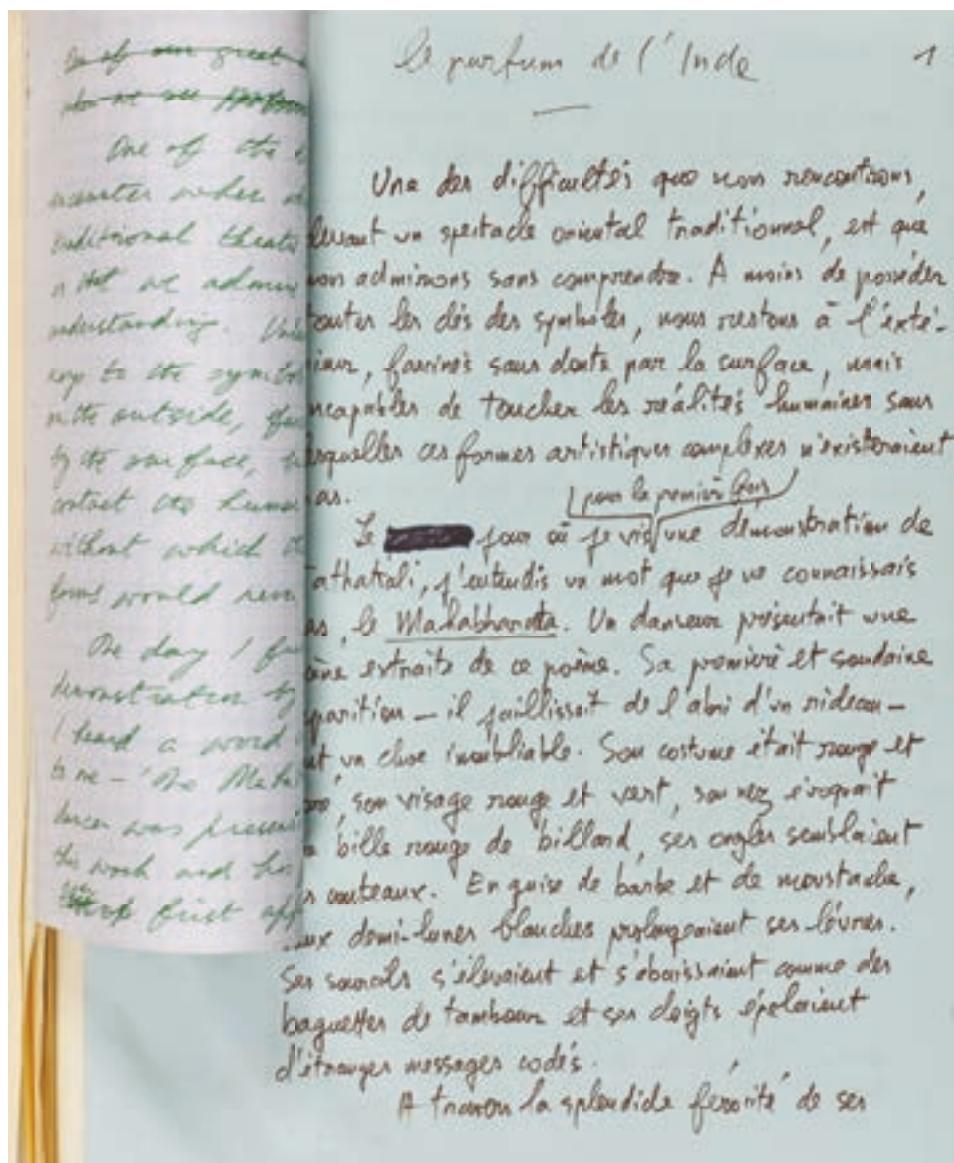 One of the
encounter when
traditional theatre
is that we admire
understanding. Unless
key to the symbols
on the outside,
by the surface,
contact the human
without which
forms would never
One day I
demonstration by
I heard a word
to me – 'The Maha
dancer was presenting
this work and his
first app
le parfum de l'Inde 1
Une des difficultés que nous rencontrons,
devant un spectacle oriental traditionnel, est que
nous admirons sans comprendre. A moins de posséder
toutes les clés des symboles, nous restons à l'exté-
rieur, fascinés sans doute par la surface, mais
incapables de toucher les réalités humaines sans
lesquelles ces formes artistiques complexes n'existeraient
pas.
pour la première fois
Le jour où je vis une démonstration de
Kathakali, j'entendis un mot que je ne connaissais
pas, le Mahabharata. Un danseur présentait une
scène extraite de ce poème. Sa première et soudaine
apparition – il jaillissait de l'abri d'un rideau –
fut un choc inoubliable. Son costume était rouge et
or, son visage rouge et vert, son nez évoquait
une bille rouge de billard, ses ongles semblaient
des couteaux. En guise de barbe et de moustache,
deux demi-lunes blanches prolongeaient ses lèvres.
Ses sourcils s'élevaient et s'abaissaient comme des
baguettes de tambour et ses doigts épelaient
d'étranges messages codés.
A travers la splendide férocité de ses